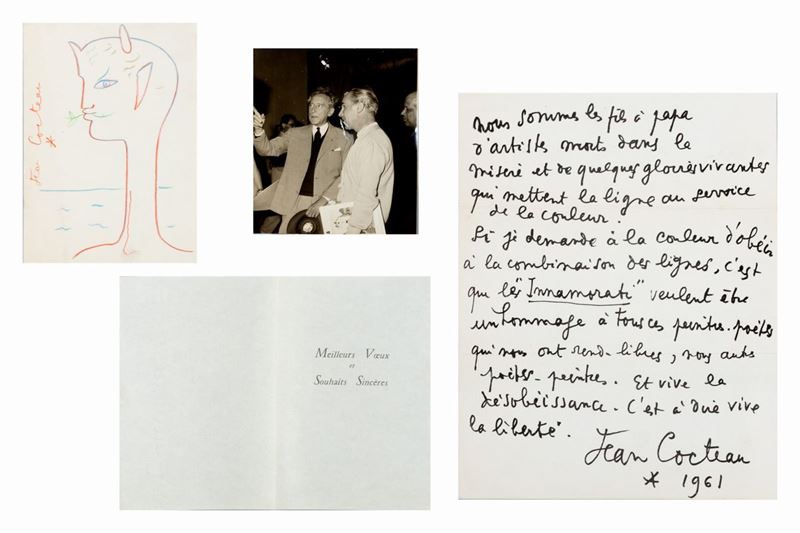 Jean Cocteau
Meilleurs Vœux
et
Souhaits Sincères
nous sommes les fils à papa
d'artistes morts dans la
misère et de quelques gloires vivantes
qui mettent la ligne au service
de la couleur.
Si je demande à la couleur d'obéir
à la combinaison des lignes, c'est
que les "Innamorati" veulent être
un hommage à tous ces peintres-poètes
qui nous ont rendu libres, nous autres
poètes-peintres. Et vive la
désobéissance. C'est à dire vive
la liberté.
Jean Cocteau
* 1961